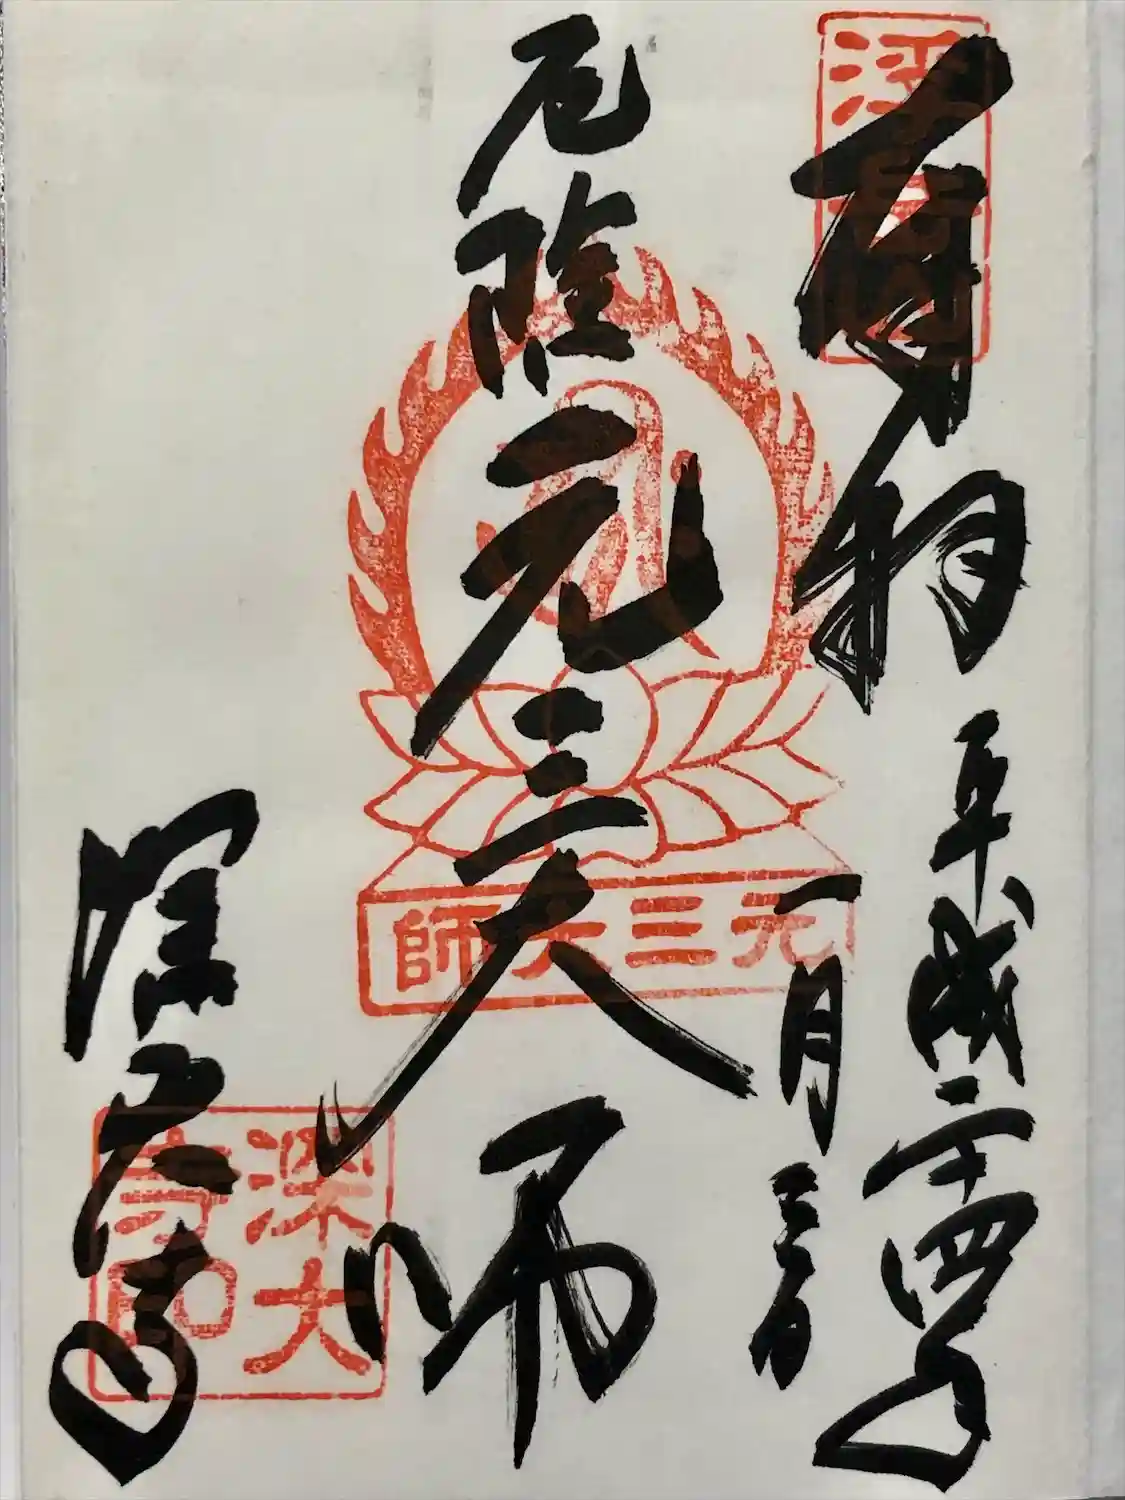 奉拝
平成二十四年
一月三日
厄除元三大師
深大寺
浮岳山
元三大師
深大寺印